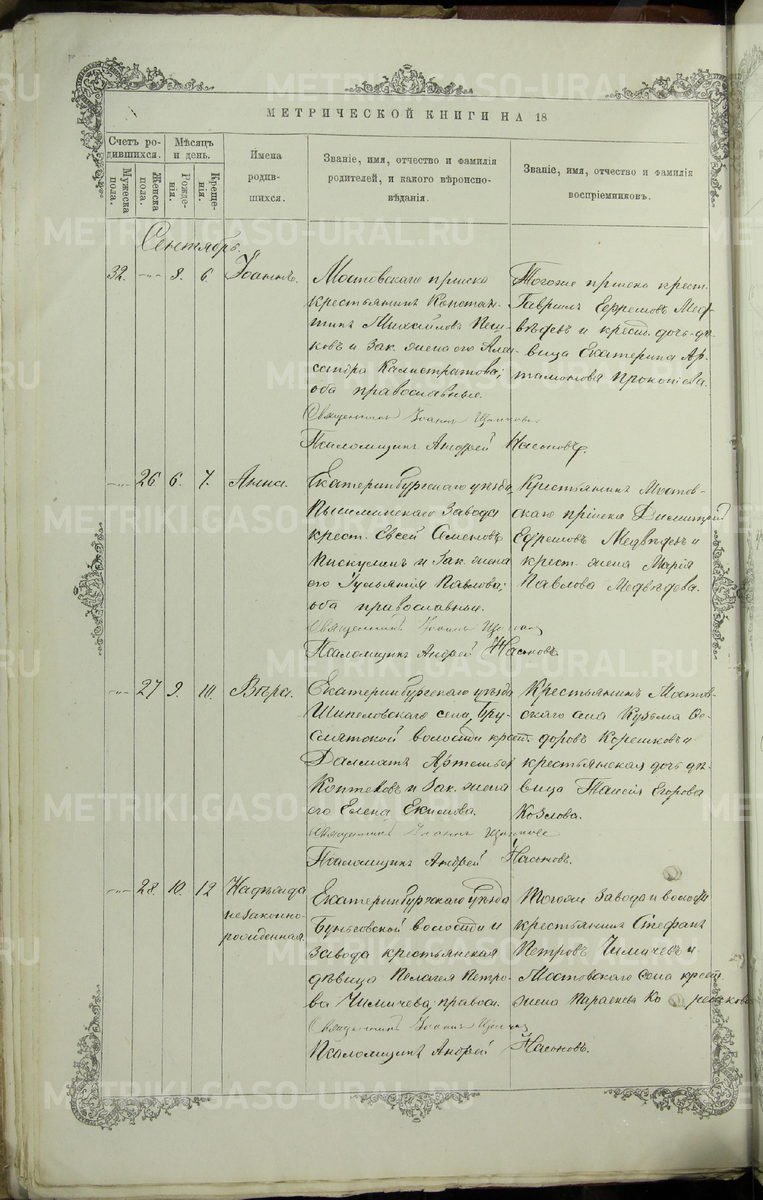 METRIKI.GASO-URAL.RU
МЕТРИЧЕСКОЙ КНИГИ НА 18
Счетъ ро-
дившихся.
Мужеска
пола.
Женска
пола.
Мѣсяцъ
и день.
Рожде-
нія.
Креще-
нія.
Имена
родив-
шихся.
Званіе, имя, отчество и фамилія
родителей, и какого вѣроиспо-
вѣданія.
Званіе, имя, отчество и фамилія
воспріемниковъ.
Сентябрь.
32. -"- 6. Іоаннъ.
Мостовскаго пріиска
крестьянинъ Констан-
тинъ Михайловъ
и зак. жена его Алек-
Калистратова;
оба православные.
Священникъ Іоаннъ
Псаломщикъ Андрей Насоновъ.
Тогоже пріиска крест.
Гавріилъ Ефремовъ Мед-
вѣдевъ и крест. дочь дѣ-
вица Екатерина Ар-
тамонова Прокопіева.
-"- 26 6. 7. Анна.
Екатеринбургскаго уѣзда,
Пышминскаго Завода
крест. Евсей Семеновъ
Пискулинъ и зак. жена
его Павлова;
оба православныи.
Священникъ Іоаннъ
Псаломщикъ Андрей Насоновъ.
Крестьянинъ Мостов-
скаго пріиска Димитрій
Ефремовъ Медвѣдевъ и
крест. жена Марія
Павлова Медвѣдева.
-"- 27 9. 10. Вѣра.
Екатеринбургскаго уѣзда
Шипеловскаго села, Бру-
сятской волости крест.
Далматъ Артемьевъ
и зак. жена
его Елена Екимова.
Священникъ Іоаннъ
Псаломщикъ Андрей Насоновъ.
Крестьянинъ Мостов-
скаго села Кузьма Ѳе-
доровъ Корешковъ и
крестьянская дочь дѣ-
вица Таисія Егорова
Козлова.
-"- 28. 10. 12 Надежда
незаконно-
рожденная.
Екатеринбургскаго уѣзда
волости и
завода крестьянская
дѣвица Пелагея Петро-
ва Чимичева, правосл.
Священникъ Іоаннъ
Псаломщикъ Андрей Насоновъ.
Тогоже завода и волости
крестьянинъ Стефанъ
Петровъ Чимичевъ и
Мостовскаго села крест.
жена Параскева